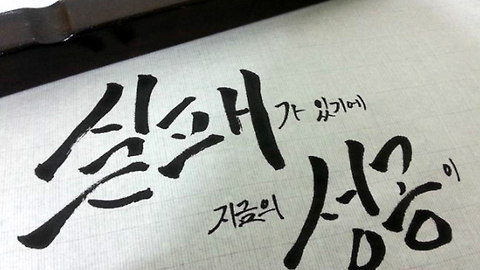 실패가 있기에
지금의 성공이